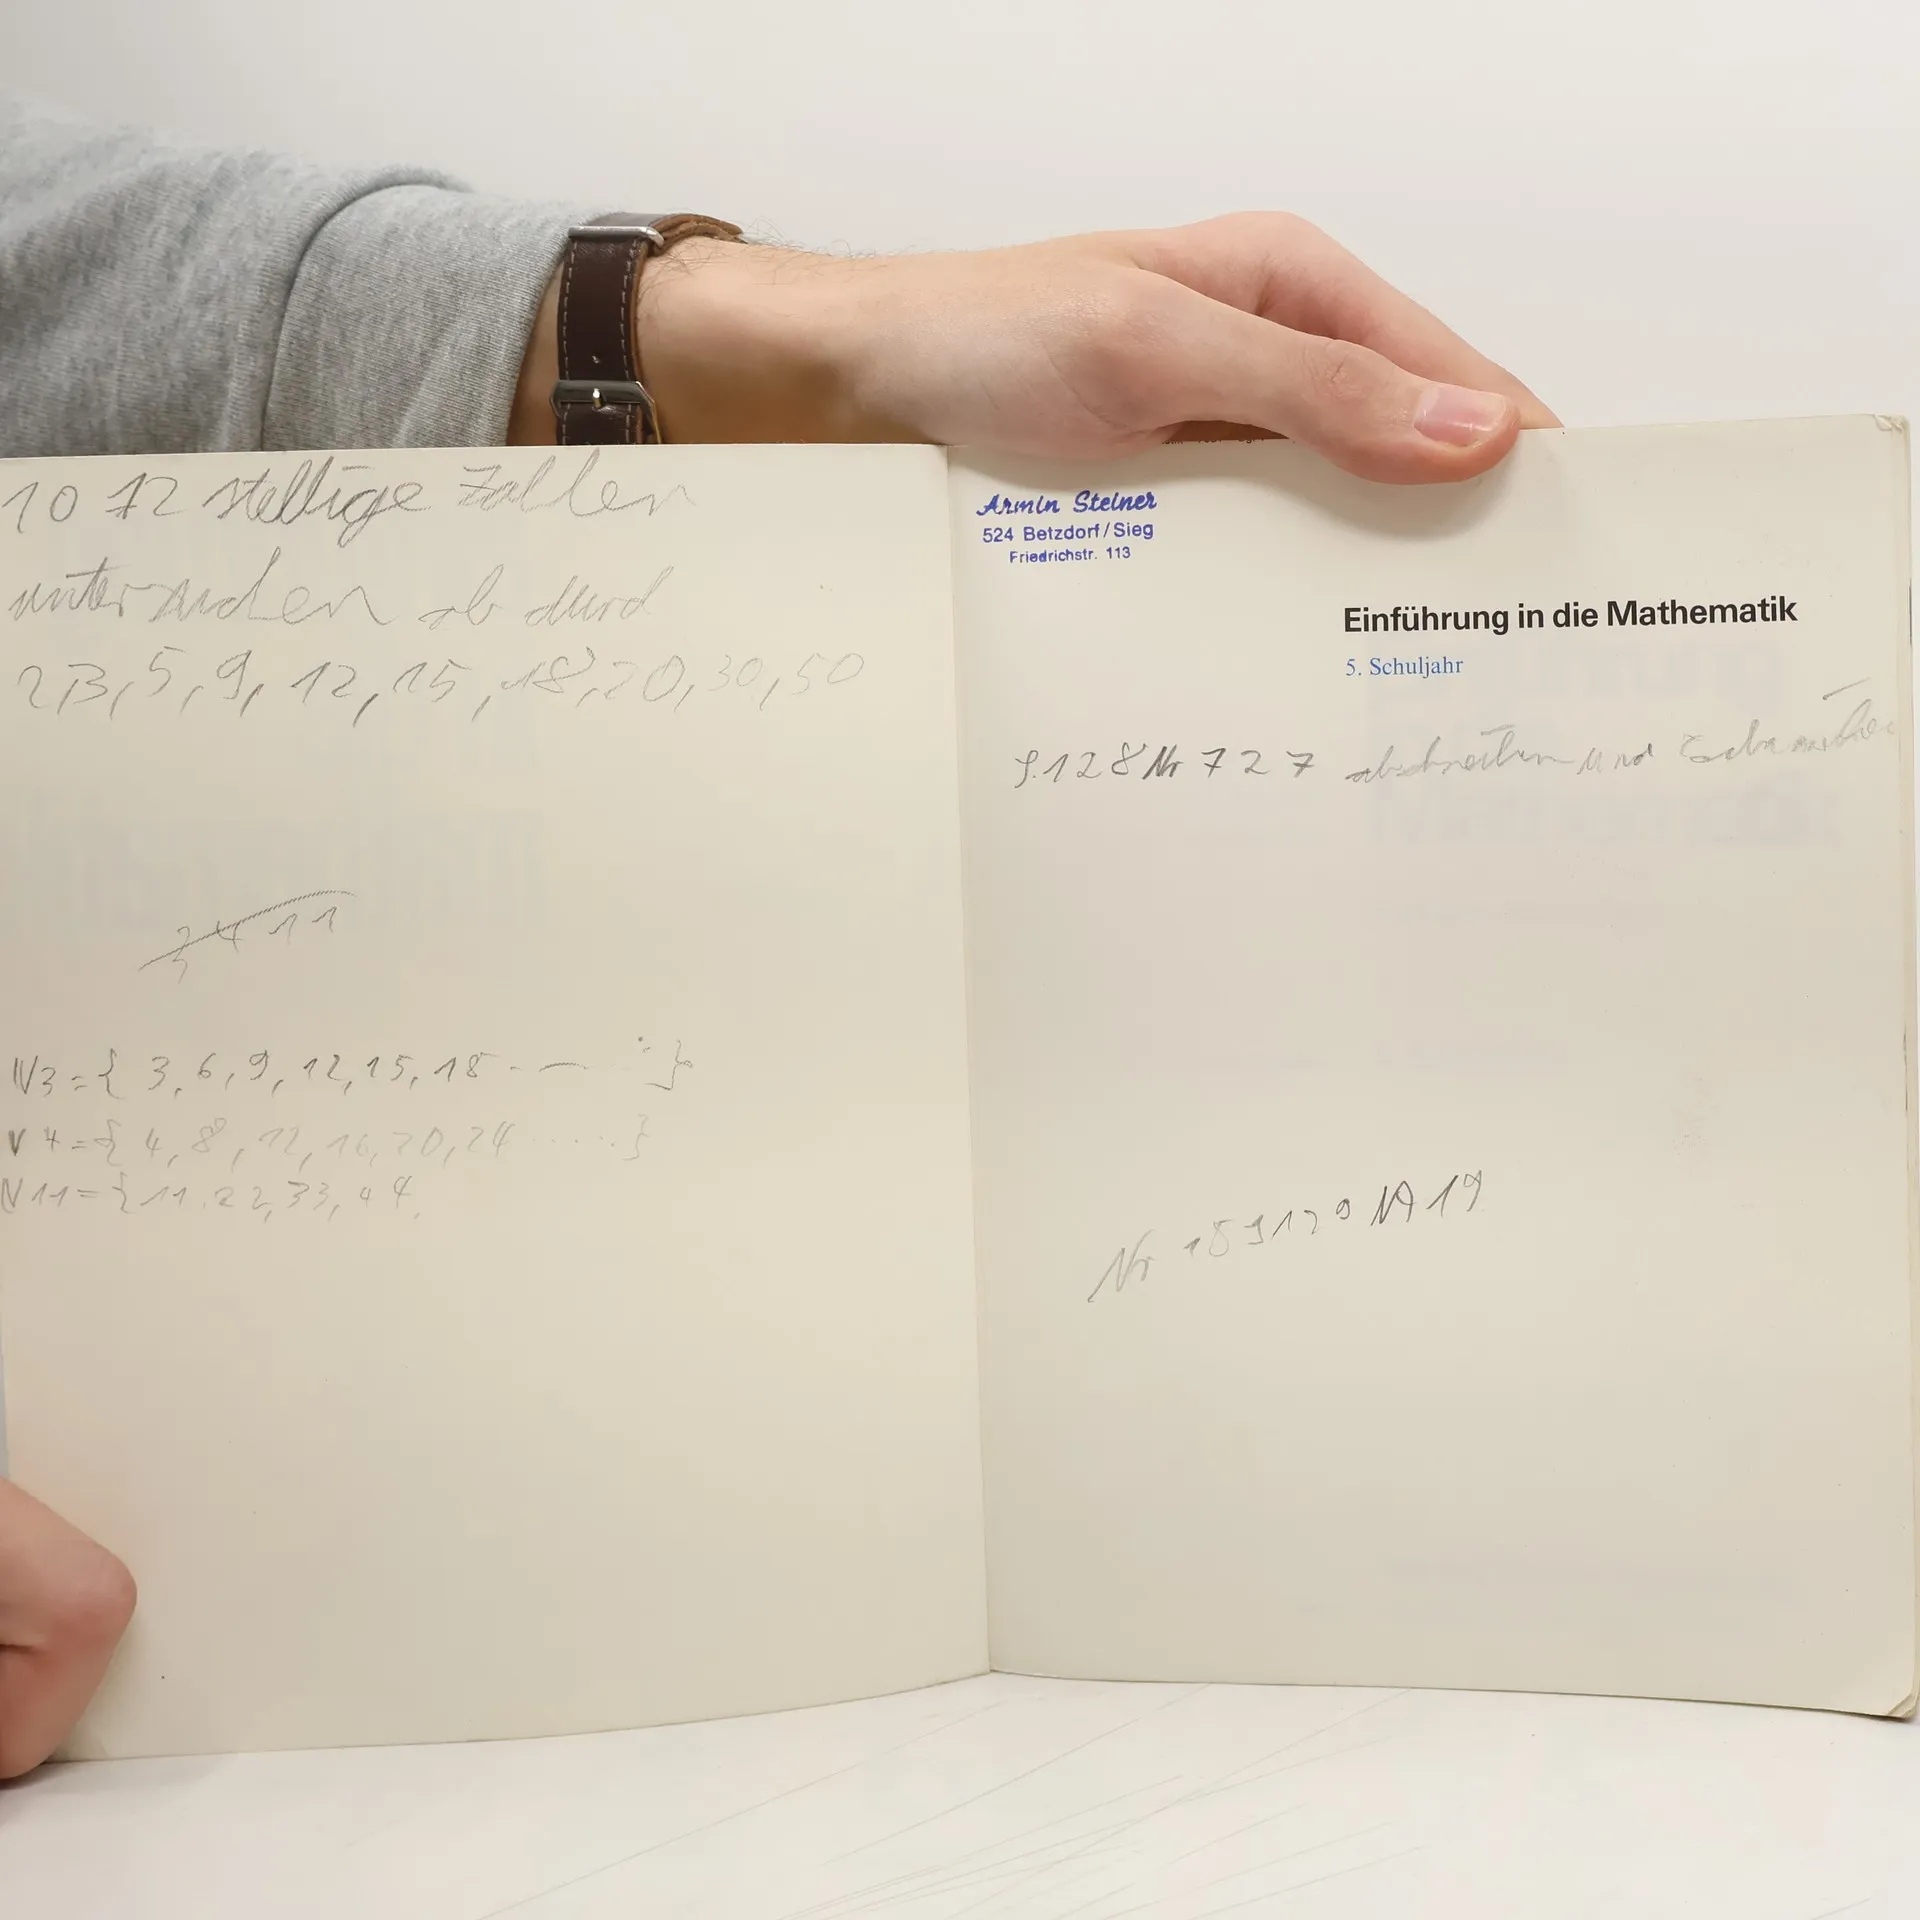 10 12 stellige Zahlen
untersuchen ob durch
2,3,5,9,12,15,18,20,30,50
3 4 11
V3={ 3,6,9,12,15,18 - — }
V 4={ 4,8,12,16,20,24 ...... }
V 11={11.22,33,44,
Armin Steiner
524 Betzdorf/Sieg
Friedrichstr. 113
Einführung in die Mathematik
5. Schuljahr
S.128 Nr 727 abschreiben und
Nr 18 S 129 NA 19